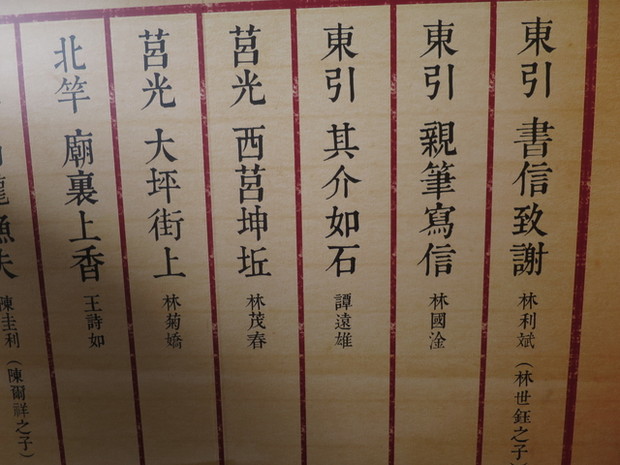 東引 書信致謝 林利斌（林世鈺之子）
東引 親筆寫信 林國淦
東引 其介如石 譚遠雄
莒光 西莒坤坵 林茂春
莒光 大坪街上 林菊嬌
北竿 廟裏上香 王詩如
龍漁夫 陳圭利（陳爾祥之子）